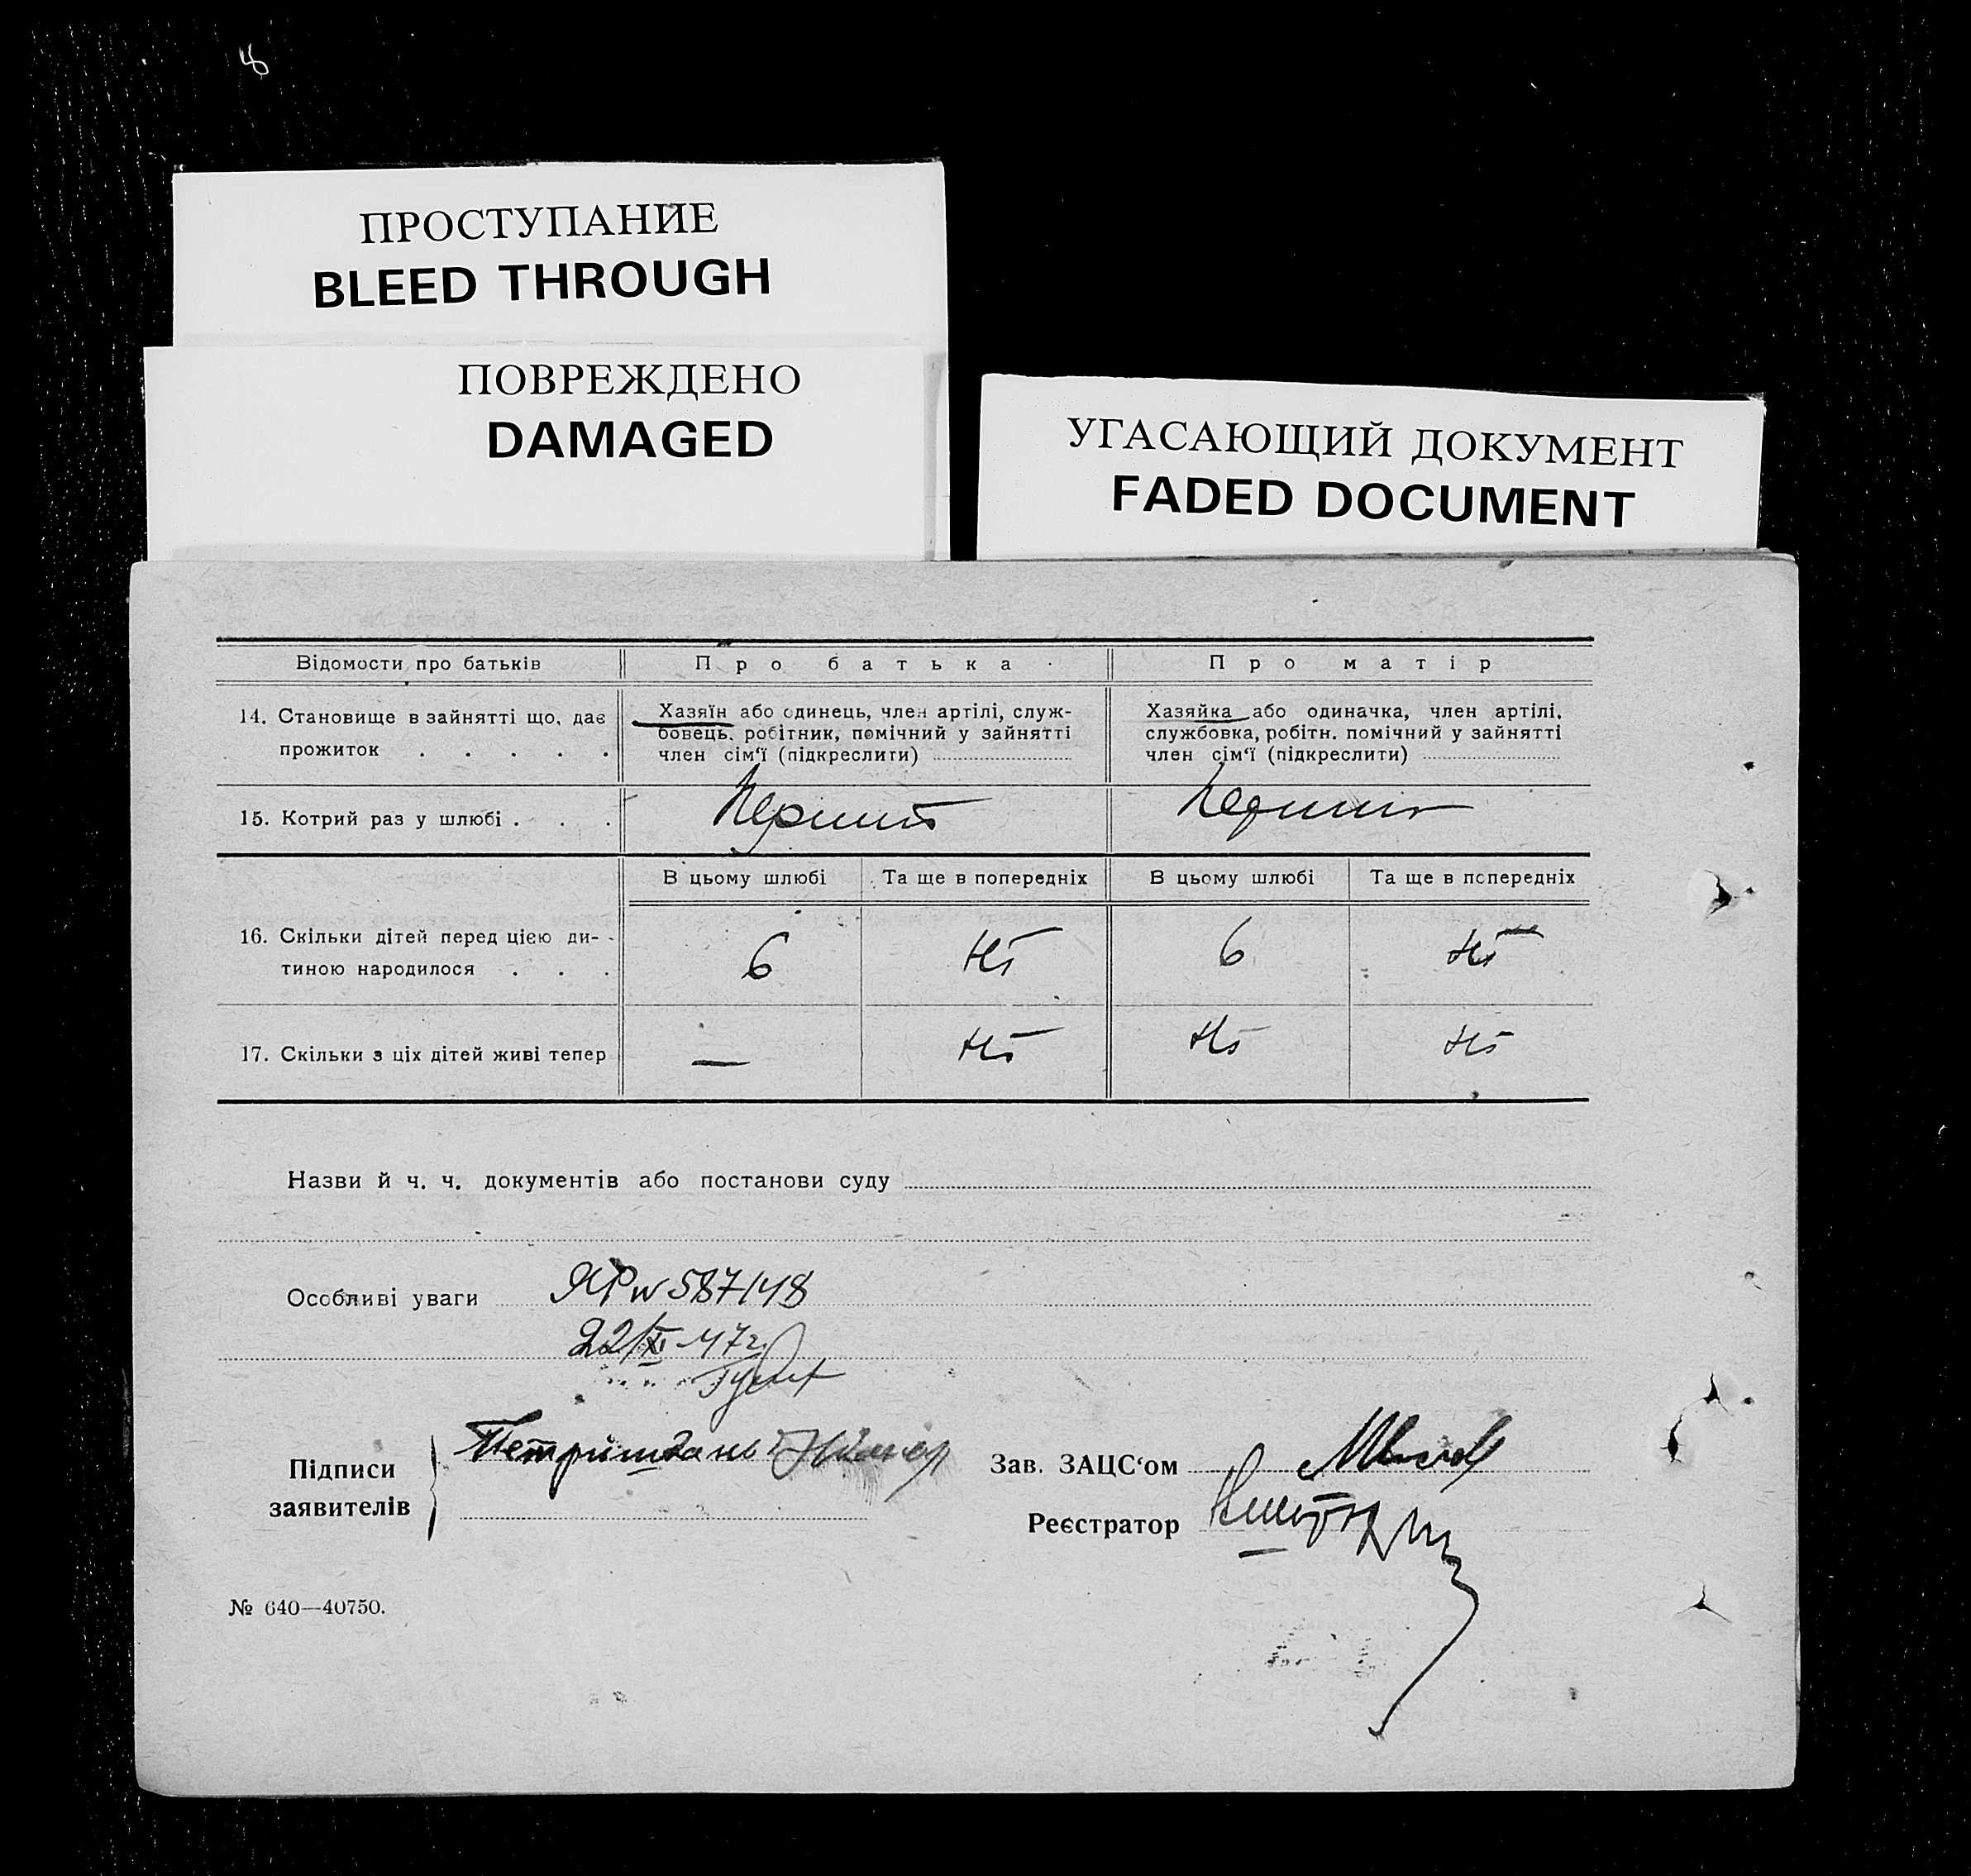 8
ПРОСТУПАНИЕ
BLEED THROUGH
ПОВРЕЖДЕНО
DAMAGED
УГАСАЮЩИЙ ДОКУМЕНТ
FADED DOCUMENT
Відомости про батьків Про батька Про матір
14. Становище в зайнятті що, дає прожиток . . . . .
Хазяїн або одинець, член артілі, служ-
бовець, робітник, помічний у зайнятті
член сім‘ї (підкреслити)
Хазяйка або одиначка, член артілі,
службовка, робітн. помічний у зайнятті
член сім‘ї (підкреслити)
15. Котрий раз у шлюбі . . . Перший Перший
В цьому шлюбі Та ще в попередніх В цьому шлюбі Та ще в попередніх
16. Скільки дітей перед цією ди-
тиною народилося . . . 6 Ні 6 Ні
17. Скільки з ціх дітей живі тепер — Ні Ні Ні
Назви й ч. ч. документів або постанови суду
Особливі уваги ЯР № 587148
22/XI-47г.
Підписи
заявителів
Зав. ЗАЦС‘ом
Реєстратор
№ 640—40750.